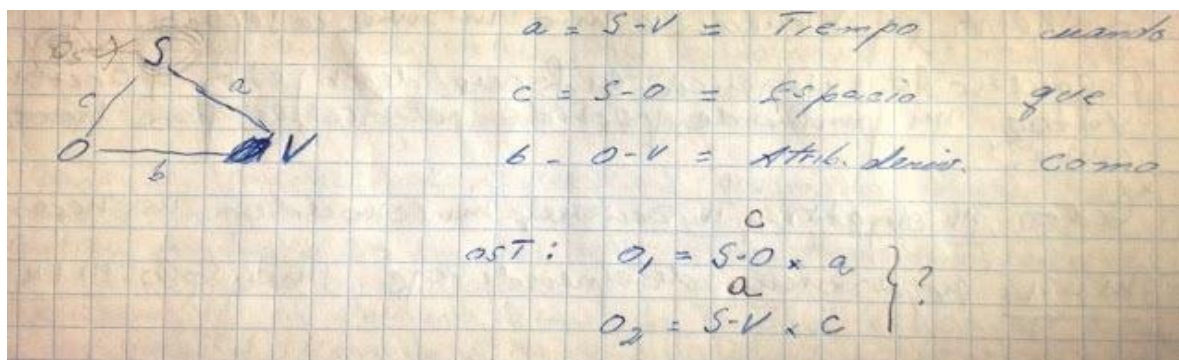 S
a
c
O V
b
a = S-V = Tiempo cuando
c = S-O = Espacio que
b - O-V = Atrib. deriv. como
c
OST: O₁ = S-O × a } ?
a
O₂ = S-V × c